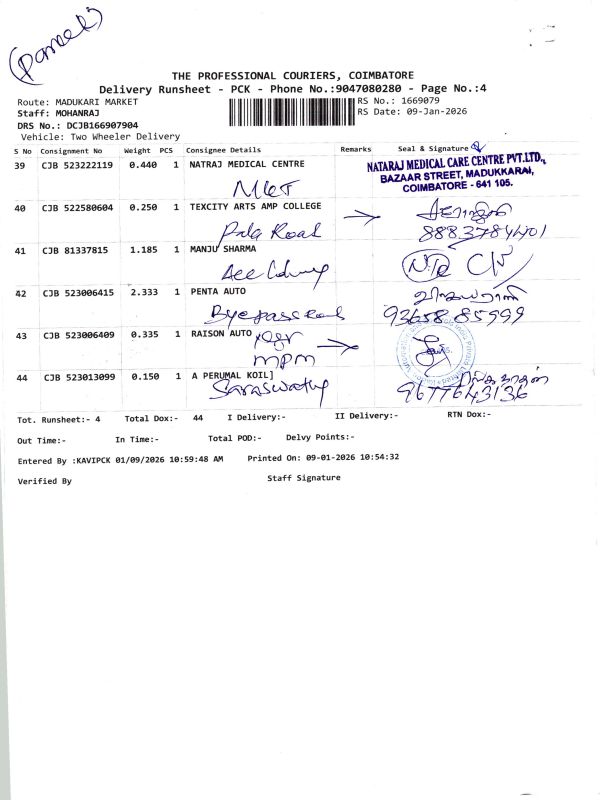 (Parcel)
THE PROFESSIONAL COURIERS, COIMBATORE
Delivery Runsheet - PCK - Phone No.:9047080280 - Page No.:4
Route: MADUKARI MARKET
RS No.: 1669079
Staff: MOHANRAJ
RS Date: 09-Jan-2026
DRS No.: DCJB166907904
Vehicle: Two Wheeler Delivery
S No Consignment No Weight PCS Consignee Details Remarks Seal & Signature
39 CJB 523222119 0.440 1 NATRAJ MEDICAL CENTRE
NATARAJ MEDICAL CARE CENTRE PVT.LTD.,
BAZAAR STREET, MADUKKARAI,
COIMBATORE - 641 105.
MKT
40 CJB 522580604 0.250 1 TEXCITY ARTS AMP COLLEGE
Road
8883784401
41 CJB 81337815 1.185 1 MANJU SHARMA
Acc
42 CJB 523006415 2.333 1 PENTA AUTO
Byepass Road
93658 85999
43 CJB 523006409 0.335 1 RAISON AUTO
MPM
44 CJB 523013099 0.150 1 A PERUMAL KOIL]
Saraswathy
9677643136
Tot. Runsheet:- 4 Total Dox:- 44 I Delivery:- II Delivery:- RTN Dox:-
Out Time:- In Time:- Total POD:- Delvy Points:-
Entered By :KAVIPCK 01/09/2026 10:59:48 AM Printed On: 09-01-2026 10:54:32
Verified By Staff Signature